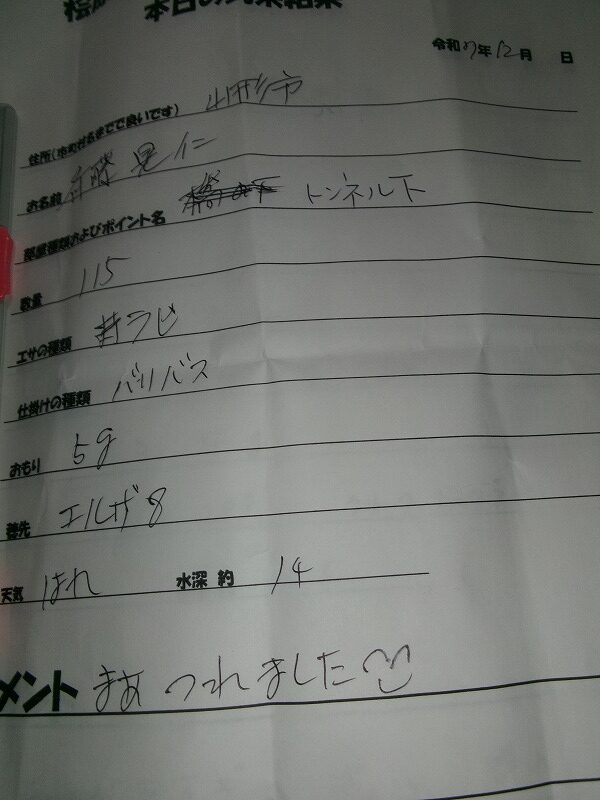 本日の
令和 7年 12月 日
住所(市町村名までで良いです) 山形市
お名前
およびポイント名 トンネル下
数量 115
エサの種類 サラビ
仕掛けの種類 バリバス
おもり 5g
穂先 エルザ8
天気 はれ 水深 約 14
メント まあ つれました